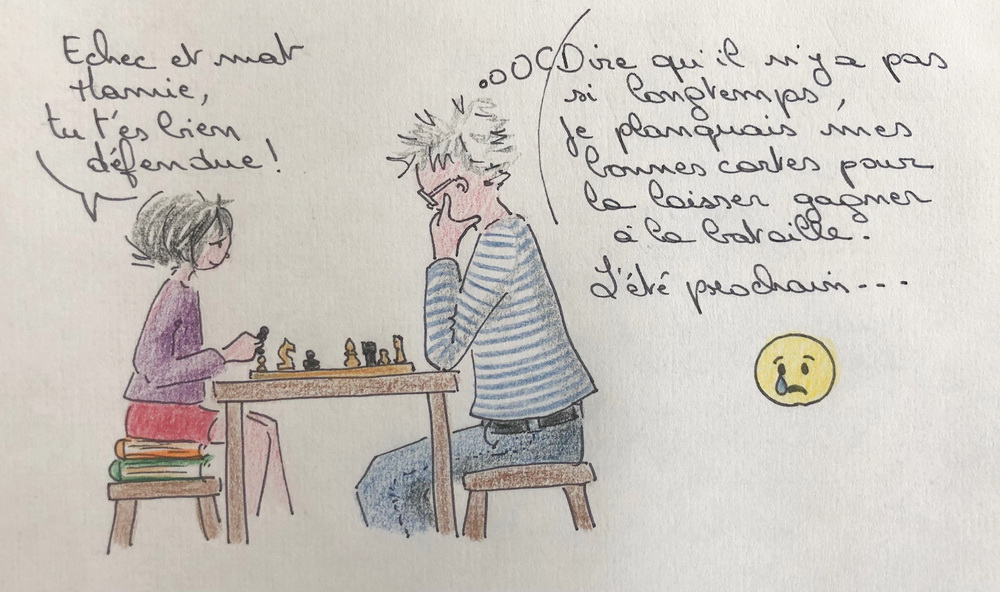 Echec et mat
Hamie,
tu t'es bien
défendue !
Dire qu'il n'y a pas
si longtemps,
je planquais mes
bonnes cartes pour
la laisser gagner
à la bataille.
L'été prochain...